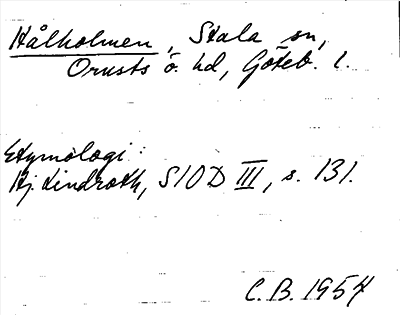 Hålholmen, Stala sn,
Orusts ö. hd, Göteb. l.
Etymologi:
Hj. Lindroth, SIOD III, s. 131.
C.B. 1957